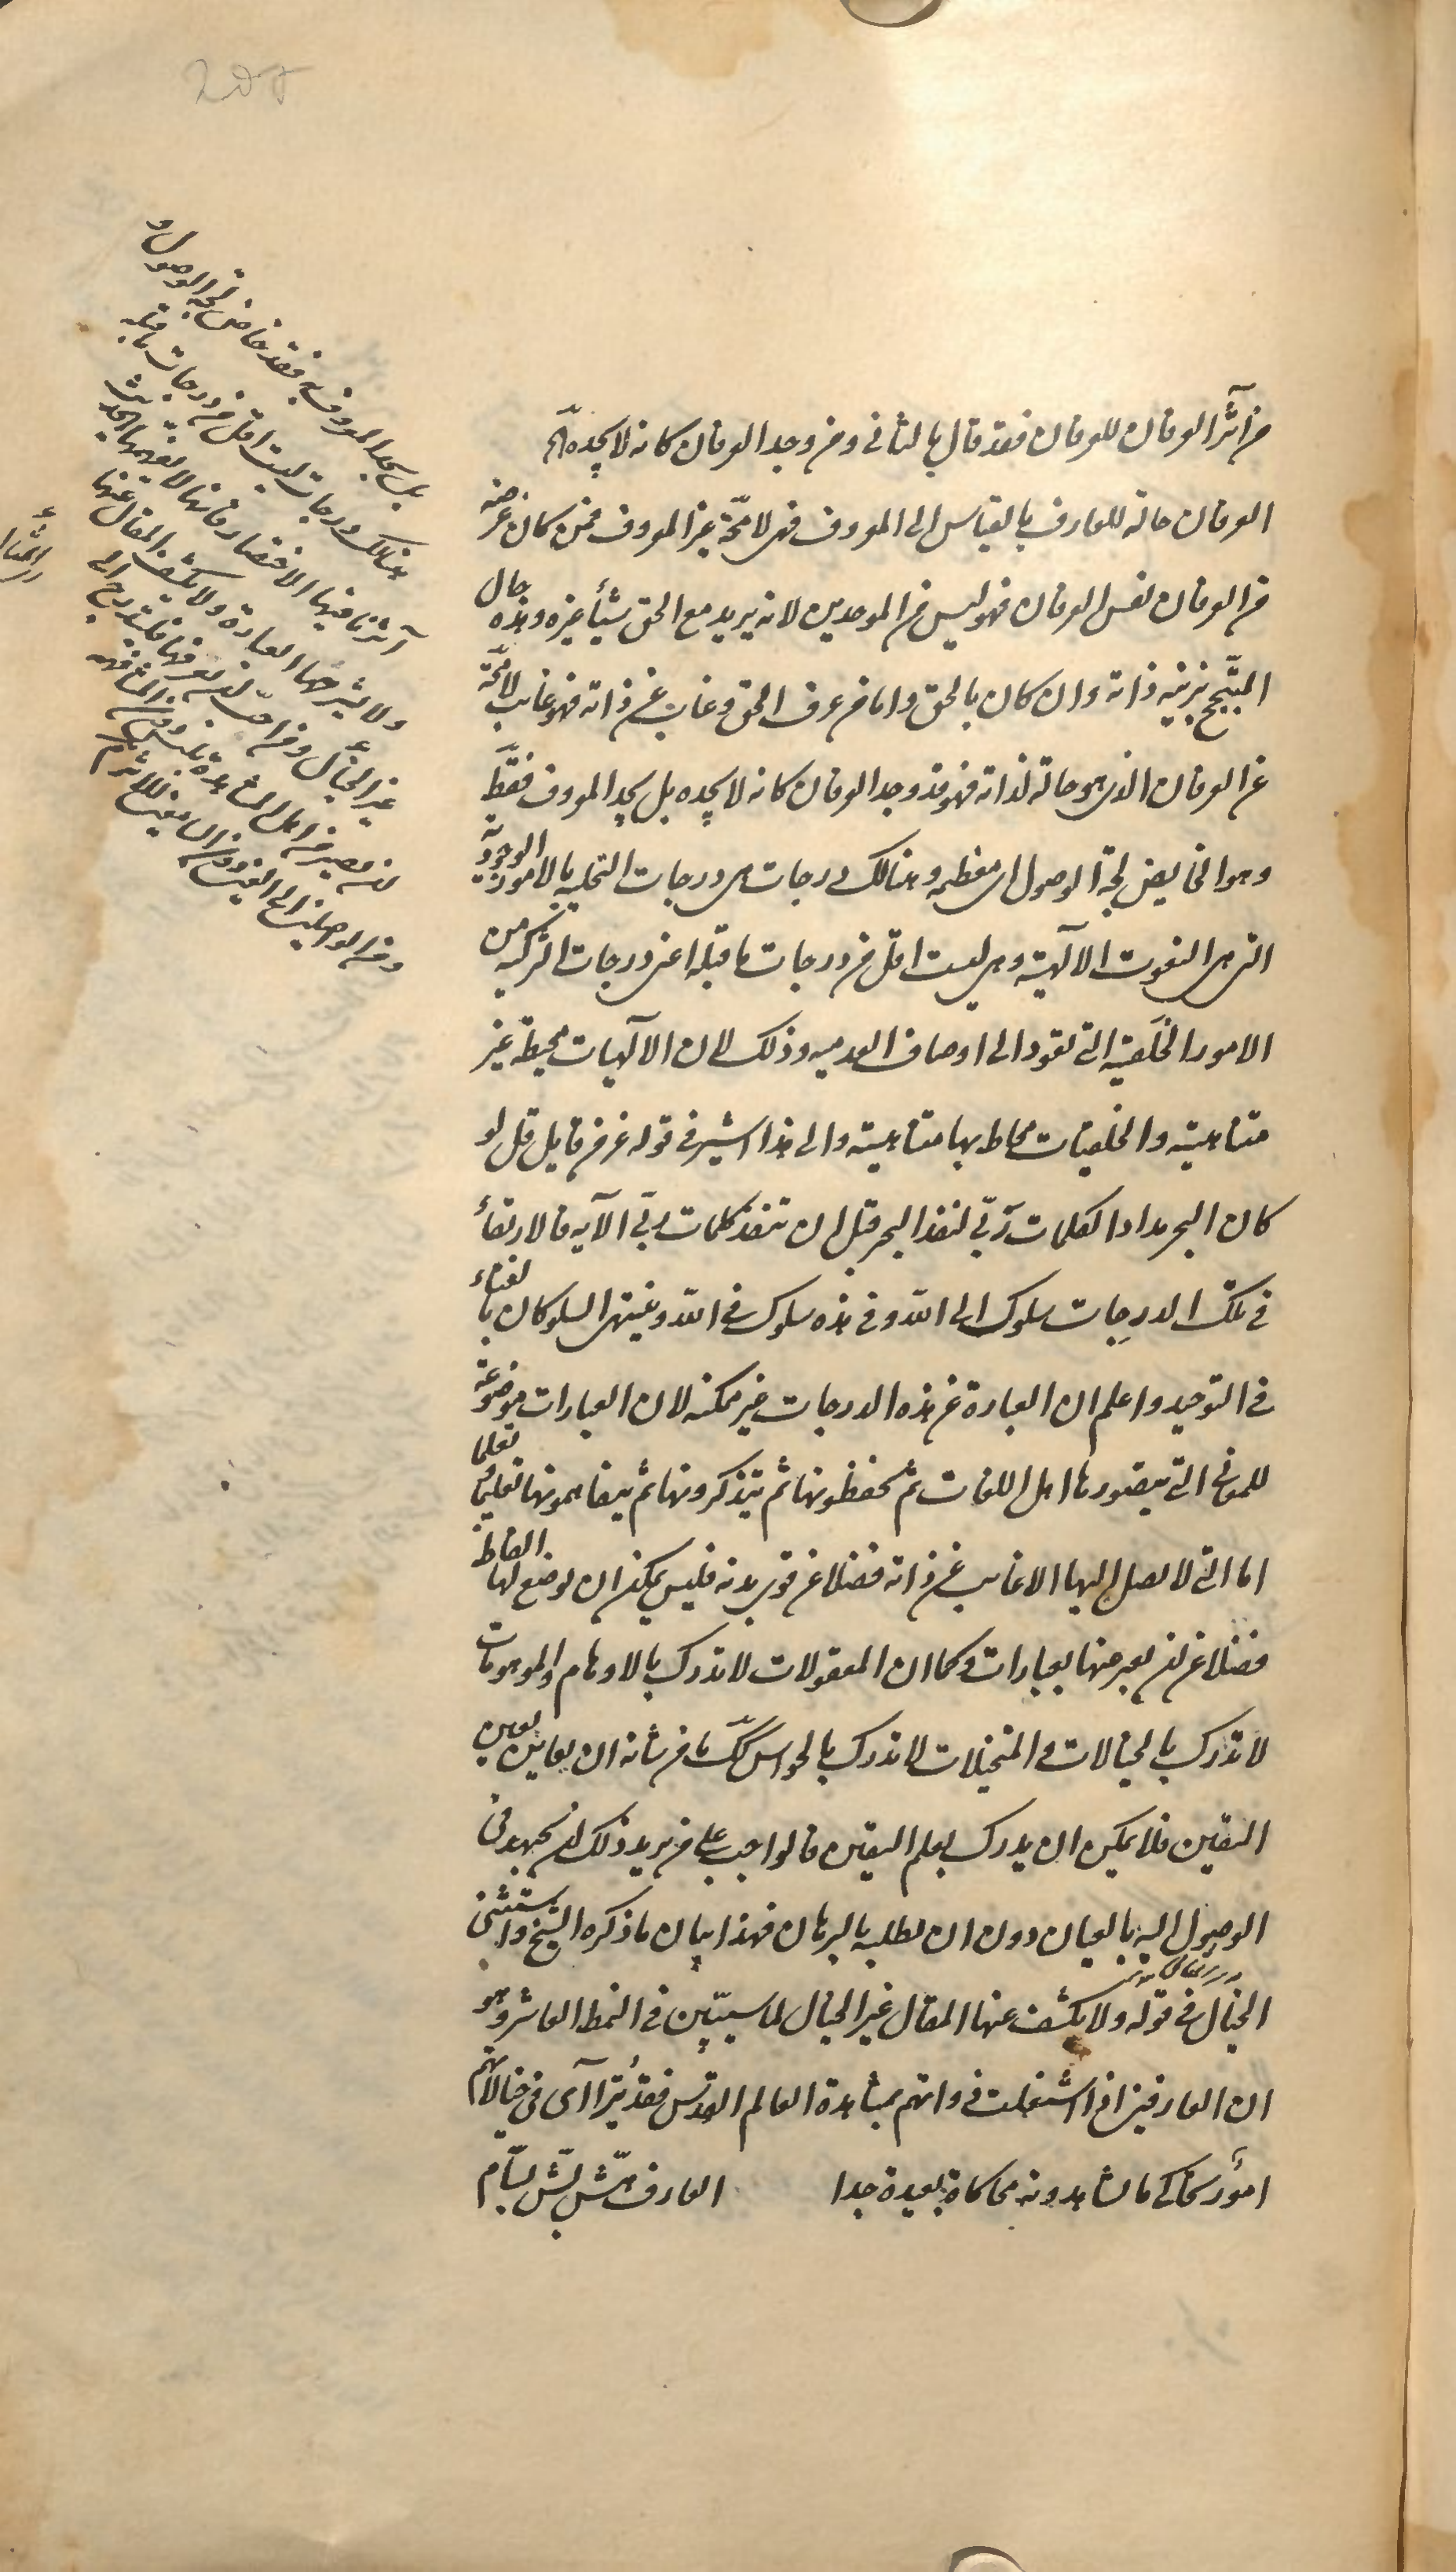 من آثر العرفان للعرفان فقد قال بالثاني ومن وجد العرفان كانه لا يجده
العرفان حالة للعارف بالقياس الى المعروف فهى لا محة غير المعروف فمن كان غرضه
من العرفان نفس العرفان فهو ليس من الموحدين لانه يريد مع الحق شيئا غيره وهذه حال
المتبجح بزينة ذاته وان كان بالحق واما من عرف الحق وغاب عن ذاته فهو غايب لا محة
عن العرفان الذى هو حالة لذاته فهو قد وجد العرفان كانه لا يجده بل يجد المعروف فقط
وهو الخايض لجة الوصول اى معظمه وهنالك درجات هى درجات التحلية بالامور الوجودية
التى هى النعوت الالهية وهى ليست اقل من درجات ما قبله اعنى درجات التزكية من
الامور الخلقية التى تعود الى اوصاف العدمية وذلك لان الالهيات محيطة غير
متناهية والخلقيات محاط بها متناهية والى هذا اشير فى قوله عز من قايل قل لو
كان البحر مدادا لكلمات ربّى لنفد البحر قبل ان تنفد كلمات ربّى الآية فالارتقاء
فى تلك الدرجات سلوك الى الله وفى هذه سلوك فى الله وينتهى السلوكان بالفناء
فى التوحيد واعلم ان العبارة عن هذه الدرجات غير ممكنة لان العبارات موضوعة
للمعانى التى يتصورها اهل اللغات ثم يحفظونها ثم يتذكرونها ثم يتفاهمونها تعليما تعلما
اما التى لا يصل اليها الا غايب عن ذاته فضلا عن قوى بدنه فليس يمكن ان يوضع لها الفاظ
فضلا عن ان يعبر عنها بعبارات وكما ان المعقولات لا تدرك بالاوهام والموهومات
لا تدرك بالخيالات والمتخيلات لا تدرك بالحواس كك ما من شانه ان يعاين بعين
اليقين فلا يمكن ان يدرك بعلم اليقين فالواجب على من يريد ذلك ان يجتهد فى
الوصول اليه بالعيان دون ان يطلبه بالبرهان فهذا بيان ما ذكره الشيخ واستثنى
الخيال فى قوله ولا يكشف عنها المقال غير الخيال لما سيبيّن فى النمط العاشر وهو
ان العارفين اذا اشتغلت ذواتهم بمشاهدة العالم القدس فقد يتراآى فى خيالاتهم
امور تحاكى ما يشاهدونه محاكاة بعيدة جدا العارف هشّ بشّ بسّام
بل يجد المعروف به فقد خاض لجة الوصول و
هنالك درجات ليست اقل من درجات ما قبله
آثرنا فيها الاختصار فانها لا يفهمها الحديث
ولا يشرحها العبارة ولا يكشف المقال عنها
غير الخيال ومن احب ان يعرفها فليتدرج الى
ان يصير من اهل المشاهدة دون المشافهة
ومن الواصلين الى العين دون السامعين للاثر